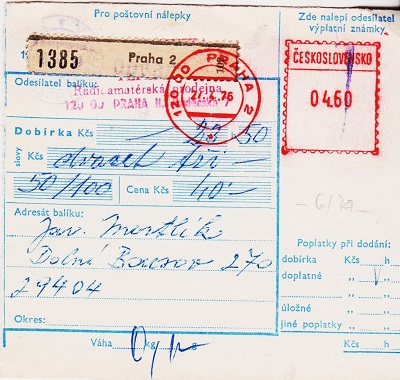 Pro poštovní nálepky
Zde nalepí odesílatel
výplatní známky
1385
Praha 2
Odesílatel balíku:
Radioamatérská prodejna
120 00 PRAHA
120 00 PRAHA 2
27.2.76
ČESKOSLOVENSKO
04.60
Dobírka Kčs 23 50
slovy Kčs dvacet tři
50/100
Cena Kčs 40.-
Adresát balíku:
Jar.
Dolní Bousov 270
29404
Okres:
Váha kg
6/29-
Poplatky při dodání:
dobírka Kčs h
doplatné " "
" "
úložné " "
jiné poplatky " "